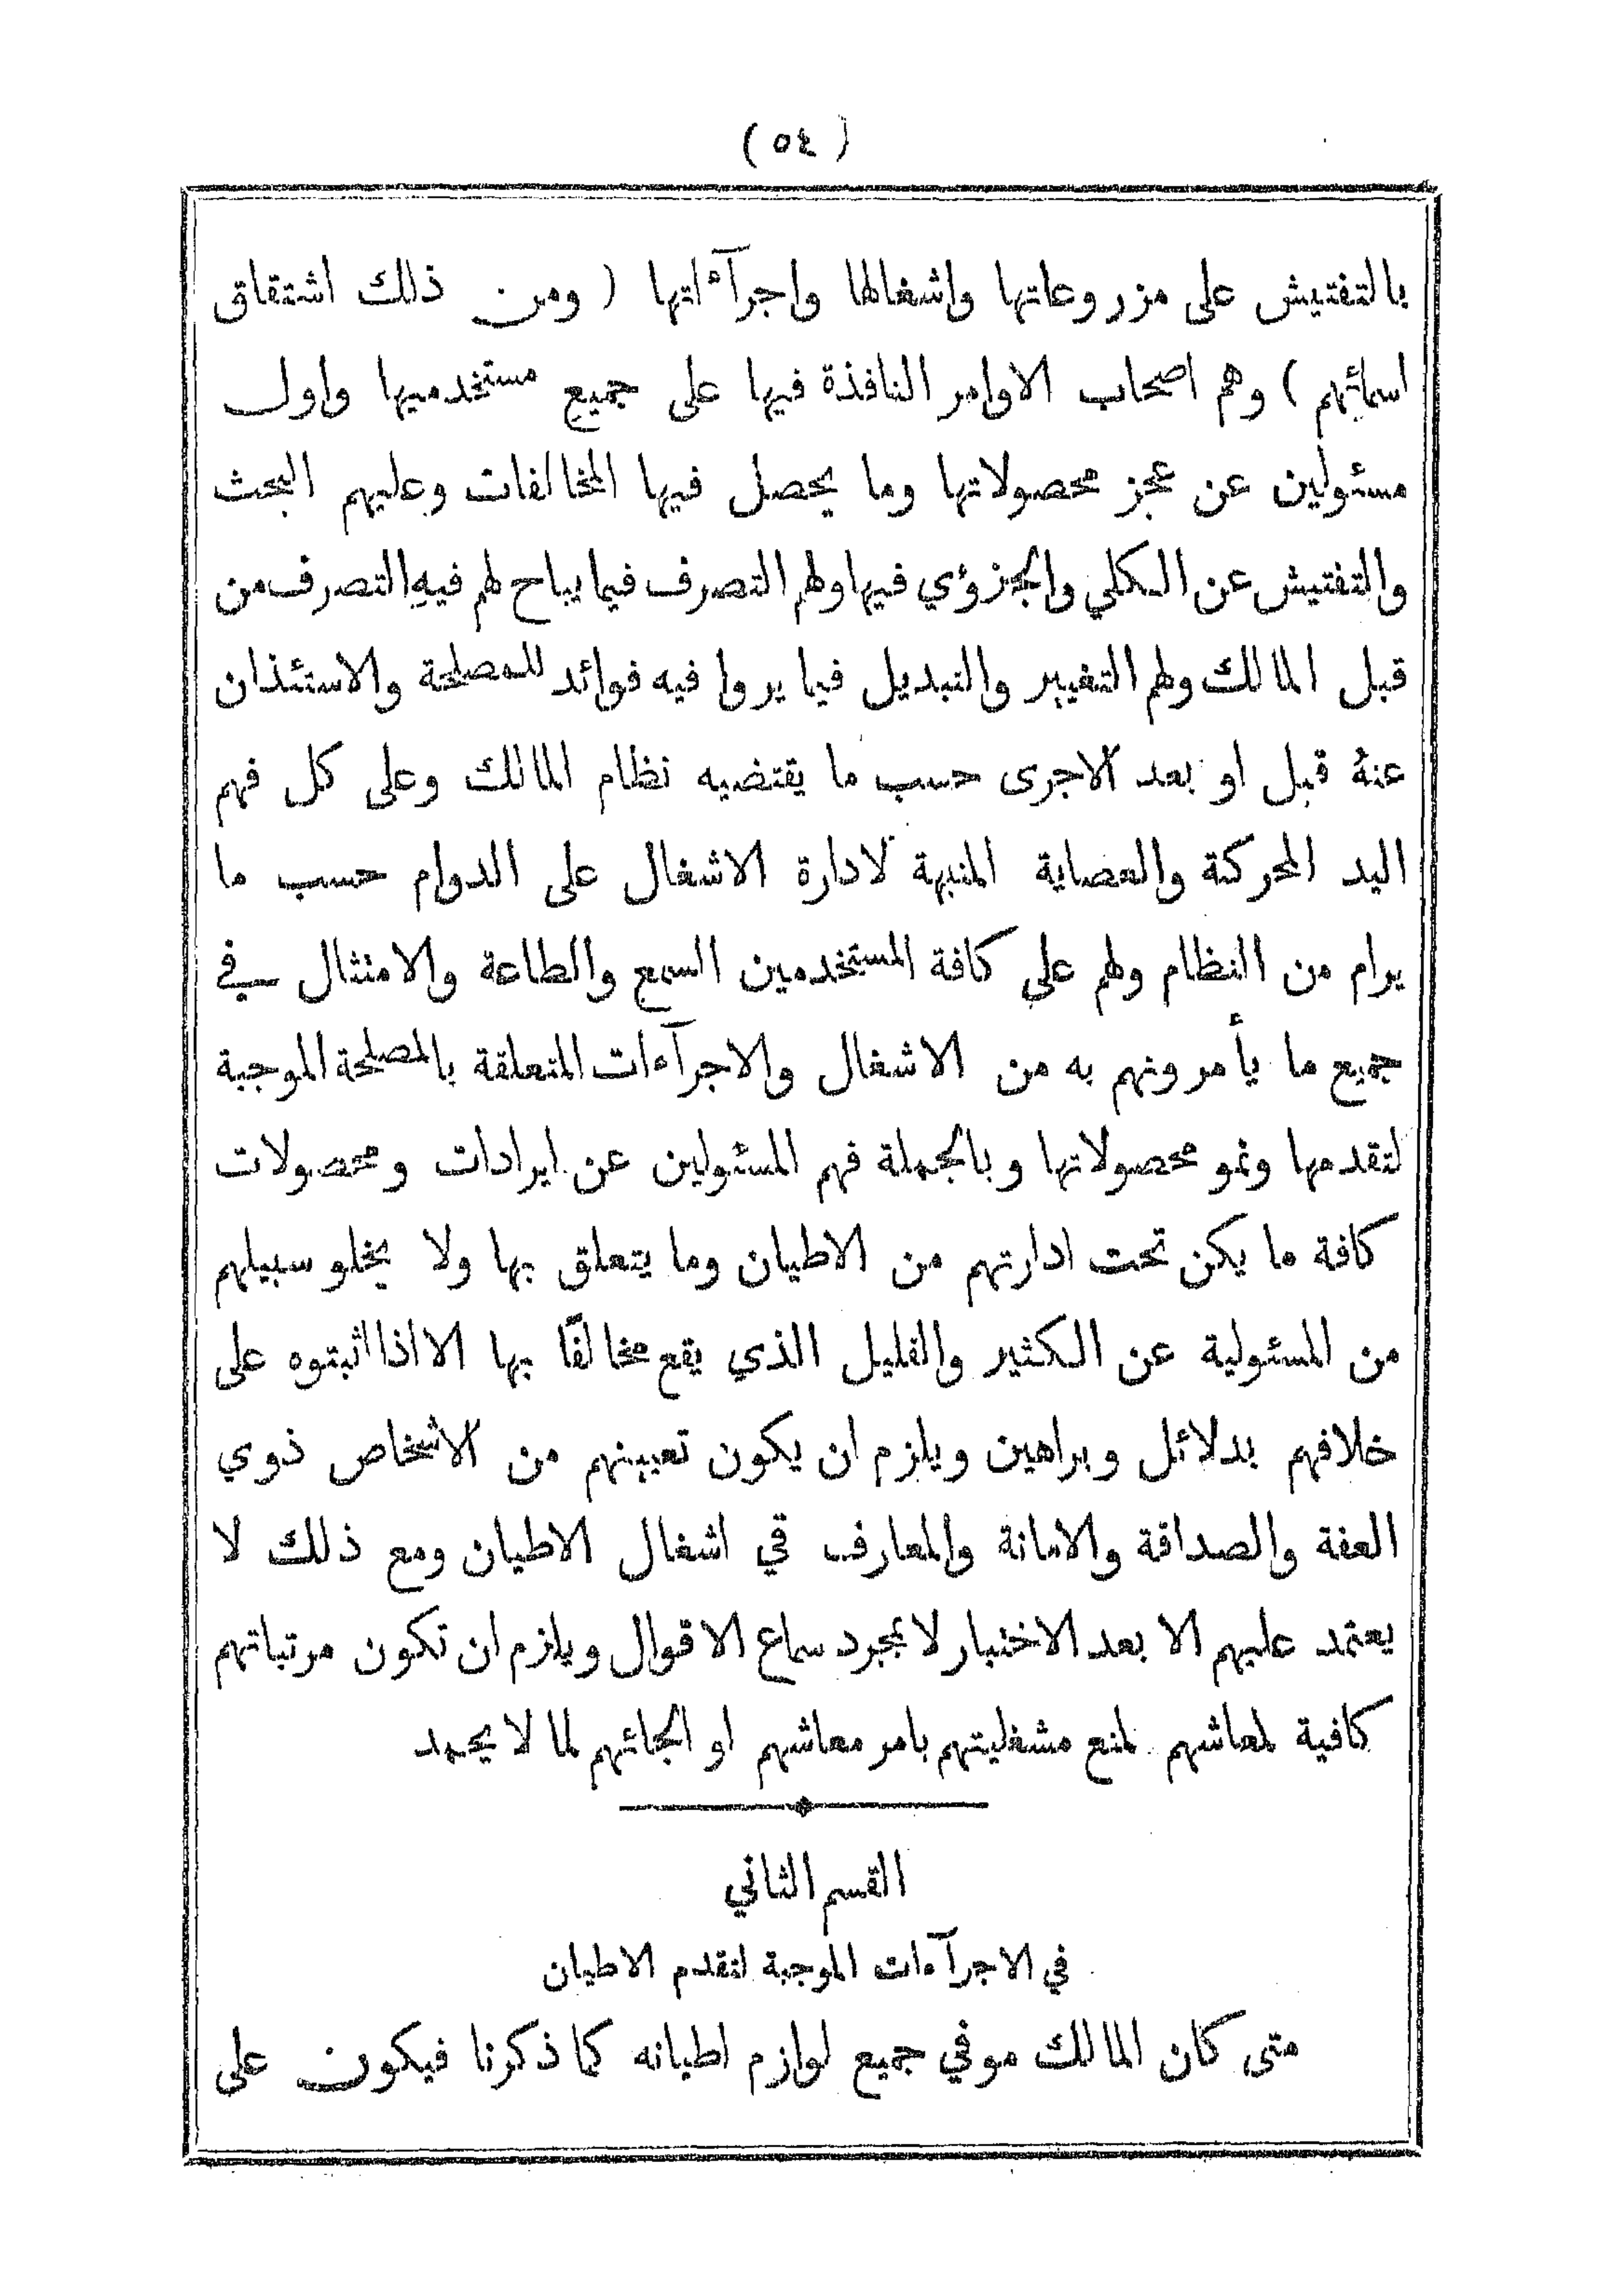 (٥٤)
بالتفتيش على مزروعاتها واشغالها واجرآءاتها (ومن ذلك اشتقاق
اسمائهم) وهم اصحاب الاوامر النافذة فيها على جميع مستخدميها واول
مسئولين عن عجز محصولاتها وما يحصل فيها المخالفات وعليهم البحث
والتفتيش عن الكلي والجزؤي فيها ولهم التصرف فيما يباح لهم فيهِ التصرف من
قبل المالك ولهم التغيير والتبديل فيما يروا فيه فوائد للمصلحة والاستئذان
عنهُ قبل او بعد الاجرى حسب ما يقتضيه نظام المالك وعلى كل فهم
اليد المحركة والعصاية المنبهة لادارة الاشغال على الدوام حسب ما
يرام من النظام ولهم على كافة المستخدمين السمع والطاعة والامتثال في
جميع ما يأمرونهم به من الاشغال والاجرآءات المتعلقة بالمصلحة الموجبة
لتقدمها ونمو محصولاتها وبالجملة فهم المسئولين عن ايرادات ومحصولات
كافة ما يكن تحت ادارتهم من الاطيان وما يتعلق بها ولا يخلو سبيلهم
من المسئولية عن الكثير والقليل الذي يقع مخالفًا بها الا اذا اثبتوه على
خلافهم بدلائل وبراهين ويلزم ان يكون تعيينهم من الاشخاص ذوي
العفة والصداقة والامانة والمعارف في اشغال الاطيان ومع ذلك لا
يعتمد عليهم الا بعد الاختبار لا بمجرد سماع الاقوال ويلزم ان تكون مرتباتهم
كافية لمعاشهم لمنع مشغليتهم بامر معاشهم او الجائهم لما لا يحمد
القسم الثاني
في الاجرآءات الموجبة لتقدم الاطيان
متى كان المالك موفي جميع لوازم اطيانه كما ذكرنا فيكون على